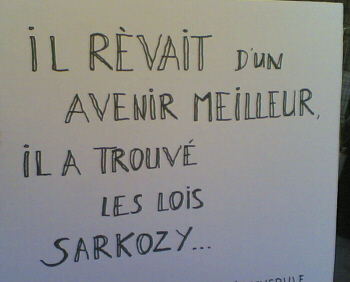 iL RÈVAIT D'UN
AVENIR MEILLEUR,
iL A TROUVÉ
LES LOiS
SARKOZY...